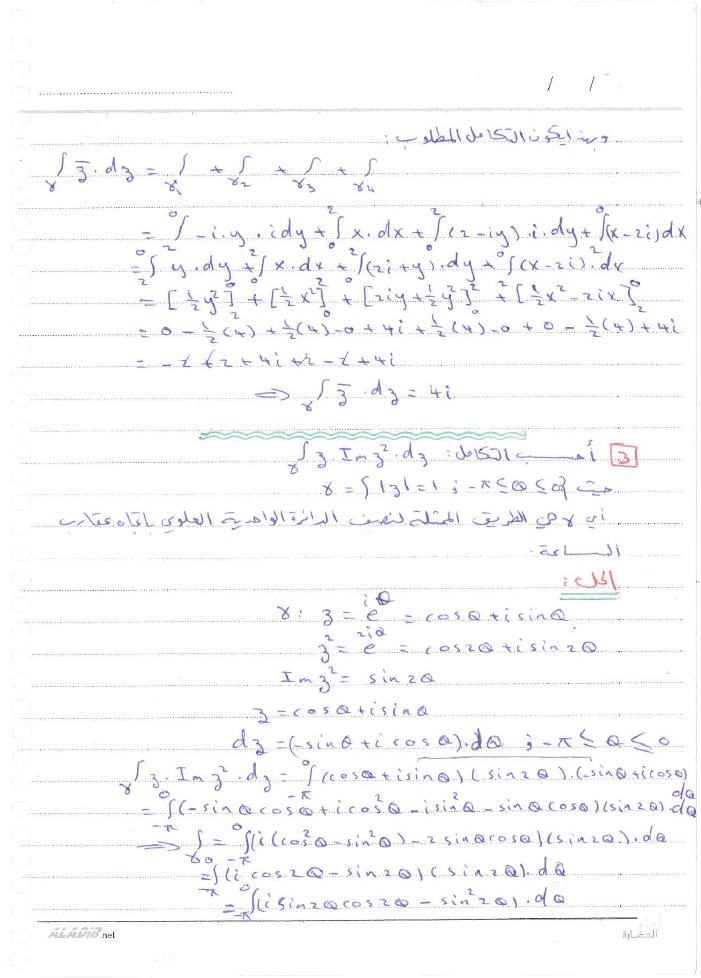 / /
وبهذا يكون التكامل المطلوب:
∫_γ z̄ · dz = ∫_γ1 + ∫_γ2 + ∫_γ3 + ∫_γ4
= ∫_2^0 -i.y . i dy + ∫_0^2 x.dx + ∫_0^2 (2-iy).i.dy + ∫_2^0 (x-2i)dx
= ∫_2^0 y.dy + ∫_0^2 x.dx + ∫_0^2 (2i+y).dy + ∫_2^0 (x-2i).dx
= [½y²]_2^0 + [½x²]_0^2 + [2iy+½y²]_0^2 + [½x²-2ix]_2^0
= 0 - ½(4) + ½(4) - 0 + 4i + ½(4) - 0 + 0 - ½(4) + 4i
= -2 + 2 + 4i + 2 - 2 + 4i
⇒ ∫_γ z̄ . dz = 4i
3 أحسب التكامل: ∫_γ z. Im z² . dz
حيث γ = { |z| = 1 ; -π ≤ θ ≤ 0 }
أي γ هي الطريق الممثلة لنصف الدائرة الواحدية العلوي باتجاه عقارب
الساعة.
الحل:
γ: z = e^{iθ} = cosθ + i sinθ
z² = e^{2iθ} = cos2θ + i sin2θ
Im z² = sin2θ
z = cosθ + i sinθ
dz = (-sinθ + i cosθ).dθ ; -π ≤ θ ≤ 0
∫_γ z. Im z² . dz = ∫_{-π}^0 (cosθ + i sinθ)(sin2θ).(-sinθ + i cosθ) dθ
= ∫_{-π}^0 (-sinθ cosθ + i cos²θ - i sin²θ - sinθ cosθ)(sin2θ).dθ
⇒ ∫_γ = ∫_{-π}^0 (i(cos²θ - sin²θ) - 2 sinθ cosθ)(sin2θ).dθ
= ∫_{-π}^0 (i cos2θ - sin2θ)(sin2θ).dθ
= ∫_{-π}^0 (i sin2θ cos2θ - sin²2θ).dθ
ALADIB.net
الحضارة